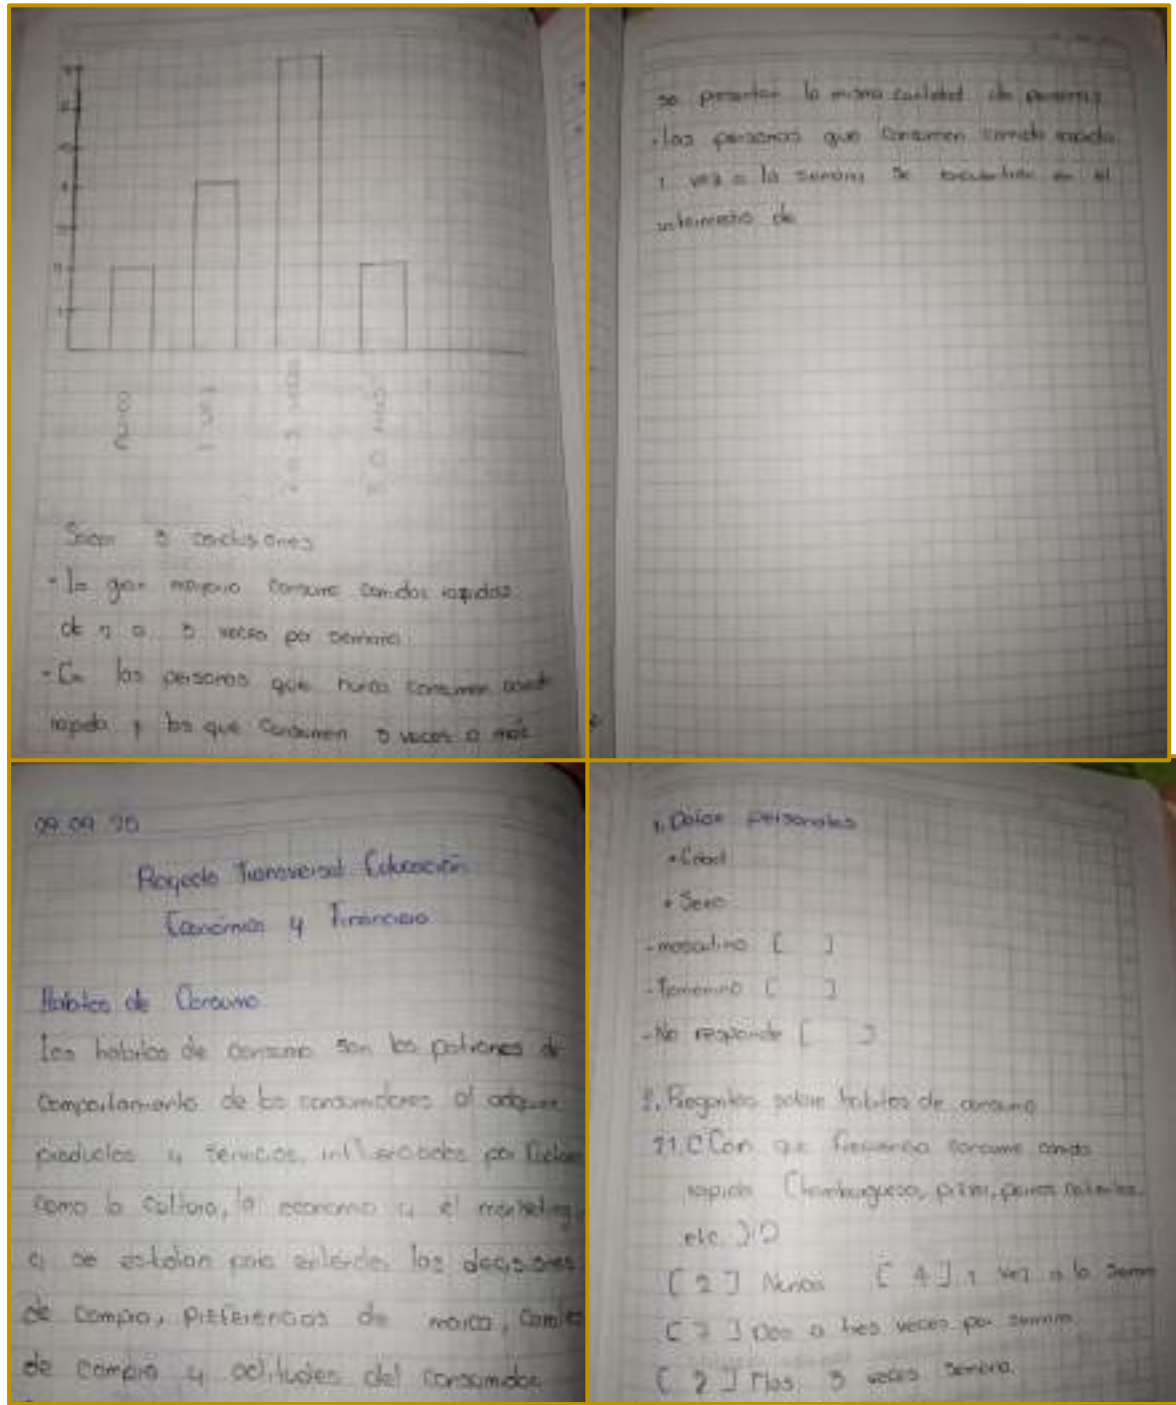 Nunca
1 vez
3 o mas
Sacar 3 conclusiones
- La gran mayoria consume comidas rapidas
de 2 a 3 veces por semana
- En las personas que nunca consumen comida
rapida y los que consumen 3 veces o mas
se presentan la misma cantidad de personas
- las personas que consumen comida rapida
1 vez a la semana se encuentran en el
intermedio de
09 09
Proyecto Transversal Educación
Económica y Financiera
Habitos de Consumo
Los habitos de consumo son los patrones de
comportamiento de los consumidores al adquirir
productos y servicios, por factores
como la cultura, la economia y el marketing,
y se estudian para entender las decisiones
de compra, preferencias de marca,
de compra y actitudes del consumidor
1. Datos personales
• Edad
• Sexo
- masculino [ ]
- Femenino [ ]
- No responde [ ]
2. Preguntas sobre habitos de consumo
2.1. ¿Con que frecuencia consume comida
rapida (hamburguesa, pizza, perros calientes,
etc.)?
[ 2 ] Nunca [ 4 ] 1 vez a la semana
[ 7 ] Dos a tres veces por semana
[ 2 ] Mas 3 veces semana